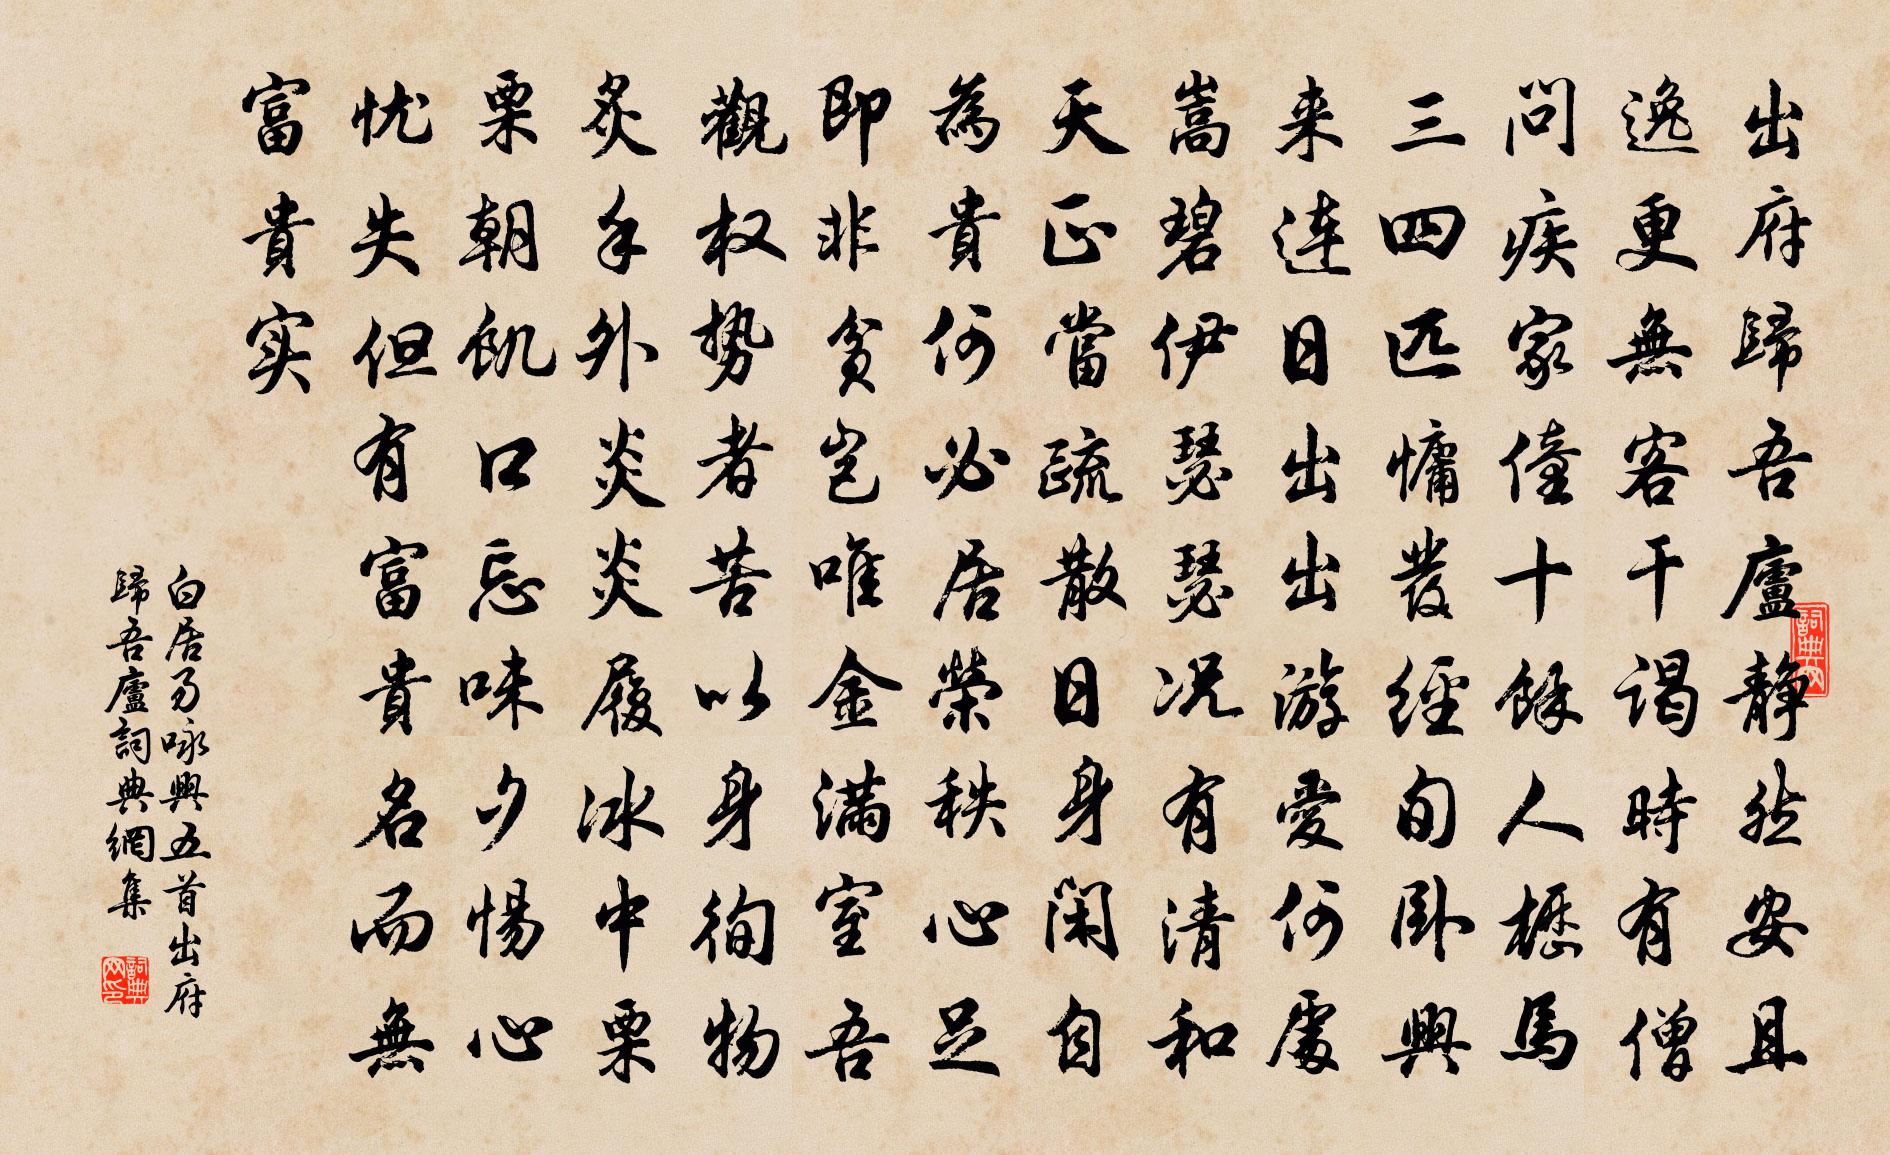 出府歸吾廬靜然安且
逸更無客干谒時有僧
問疾家僮十餘人櫪馬
三四匹慵發經旬卧興
来連日出出游愛何處
嵩碧伊瑟瑟况有清和
天正當疏散日身閑自
為貴何必居榮秩心足
即非貧岂唯金滿室吾
觀权势者苦以身徇物
炙手外炎炎履冰中栗
栗朝飢口忘味夕惕心
忧失但有富貴名而無
富貴实
白居易咏興五首出府
歸吾廬詞典網集
詞典网
詞典网印